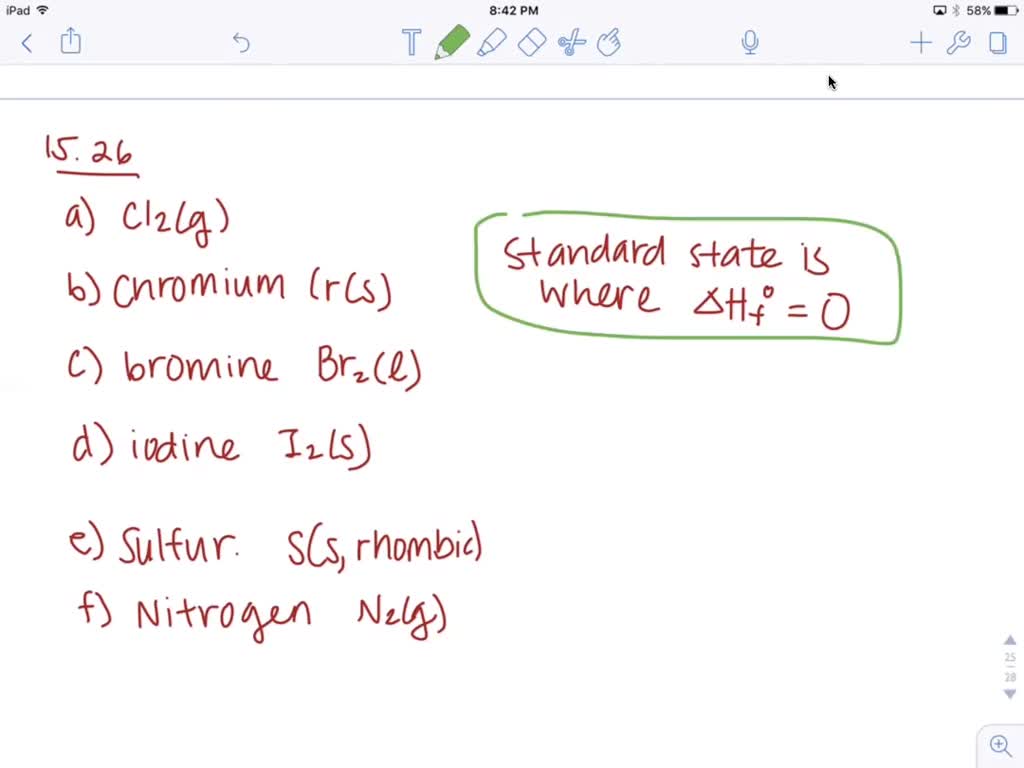 iPad
8:42 PM
58%
T
15.26
a) Cl2(g)
b) Chromium Cr(s)
c) bromine Br2(l)
d) iodine I2(s)
e) Sulfur. S(s, rhombic)
f) Nitrogen N2(g)
Standard state is
where ΔHf° = 0
25
28